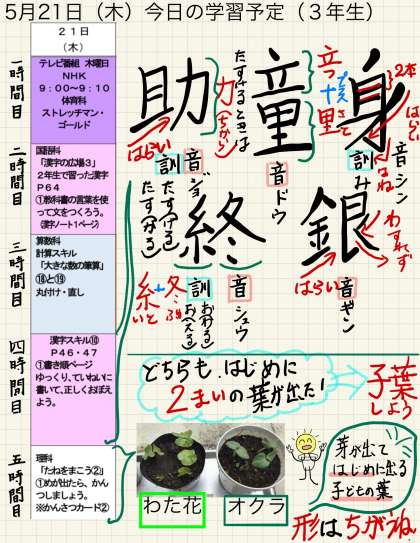 5月21日（木）今日の学習予定（3年生）
21日
（木）
一時間目
テレビ番組　木曜日
NHK
9：00～9：10
体育科
ストレッチマン・
ゴールド
二時間目
国語科
「漢字の広場3」
2年生で習った漢字
P64
①教科書の言葉を使
って文をつくろう。
（漢字ノート1ページ）
三時間目
算数科
計算スキル
「大きな数の筆算」
⑱と⑲
丸付け・直し
四時間目
漢字スキル⑩
P46・47
①書き順ページ
ゆっくり、ていねいに
書いて、正しくおぼえ
よう。
五時間目
理科
「たねをまこう②」
①めが出たら、かん
つしましょう。
※かんさつカード②
身
2本
はらい
はね
わすれず
音シン
訓み
童
立つ
プラス
＋
里
さと
音ドウ
助
たすけるときは
力（ちから）
はらい
音ジョ
訓
たすける
たすかる
銀
はらい
音ギン
終
糸
いと
＋
冬
ふゆ
音シュウ
訓
おわる
おえる
どちらも、はじめに
2まいの葉が出た！
子葉
しよう
芽が出て
はじめに出る
子どもの葉
わた花
オクラ
形はちがうね